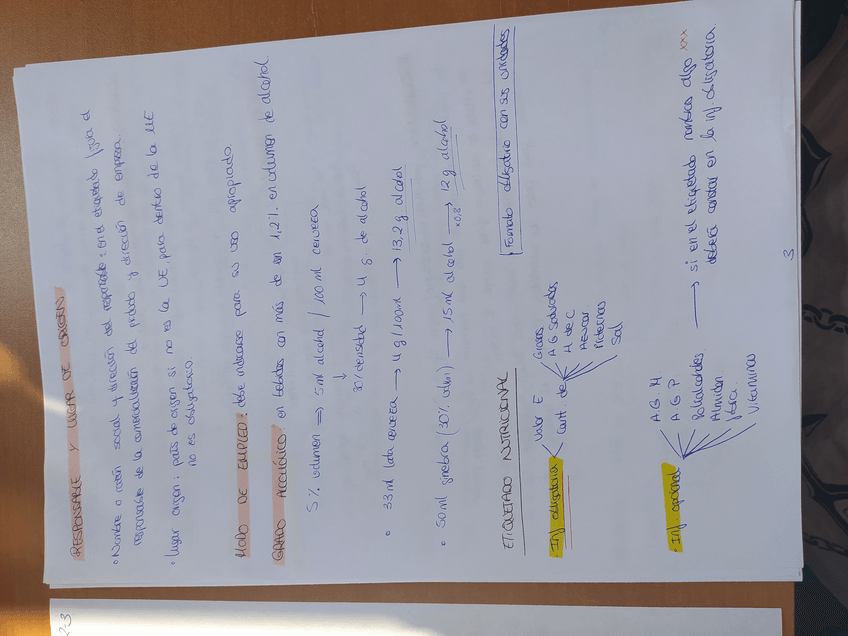 RESPONSABLE Y LUGAR DE ORIGEN
• Nombre o razón social y dirección del responsable: en el etiquetado figura el
responsable de la comercialización del producto y dirección de empresa.
• Lugar origen: país de origen si no es la UE, para dentro de la UE
no es obligatorio
MODO DE EMPLEO: debe indicarse para su uso apropiado.
GRADO ALCOHÓLICO: en bebidas con más de un 1,2% en volumen de alcohol
5% volumen ⇒ 5ml alcohol / 100 ml cerveza
↓
80% densidad → 4 g de alcohol
• 33 ml lata cerveza → 4g/100ml → 13,2 g alcohol
• 50ml ginebra (30% volum) → 15 ml alcohol → 12g alcohol
x0,8
ETIQUETADO NUTRICIONAL
Formato obligatorio con sus unidades
• Inf obligatoria
Valor E
Cant. de
Grasas
A G Saturados
H de C
Azucar
Proteinas
Sal
• Inf. opcional
A G M
A G P
Polialcoholes
Almidón
fibra
Vitaminas
→ si en el etiquetado nombras algo xxx
deberá constar en la inf. obligatoria.
3
2-3